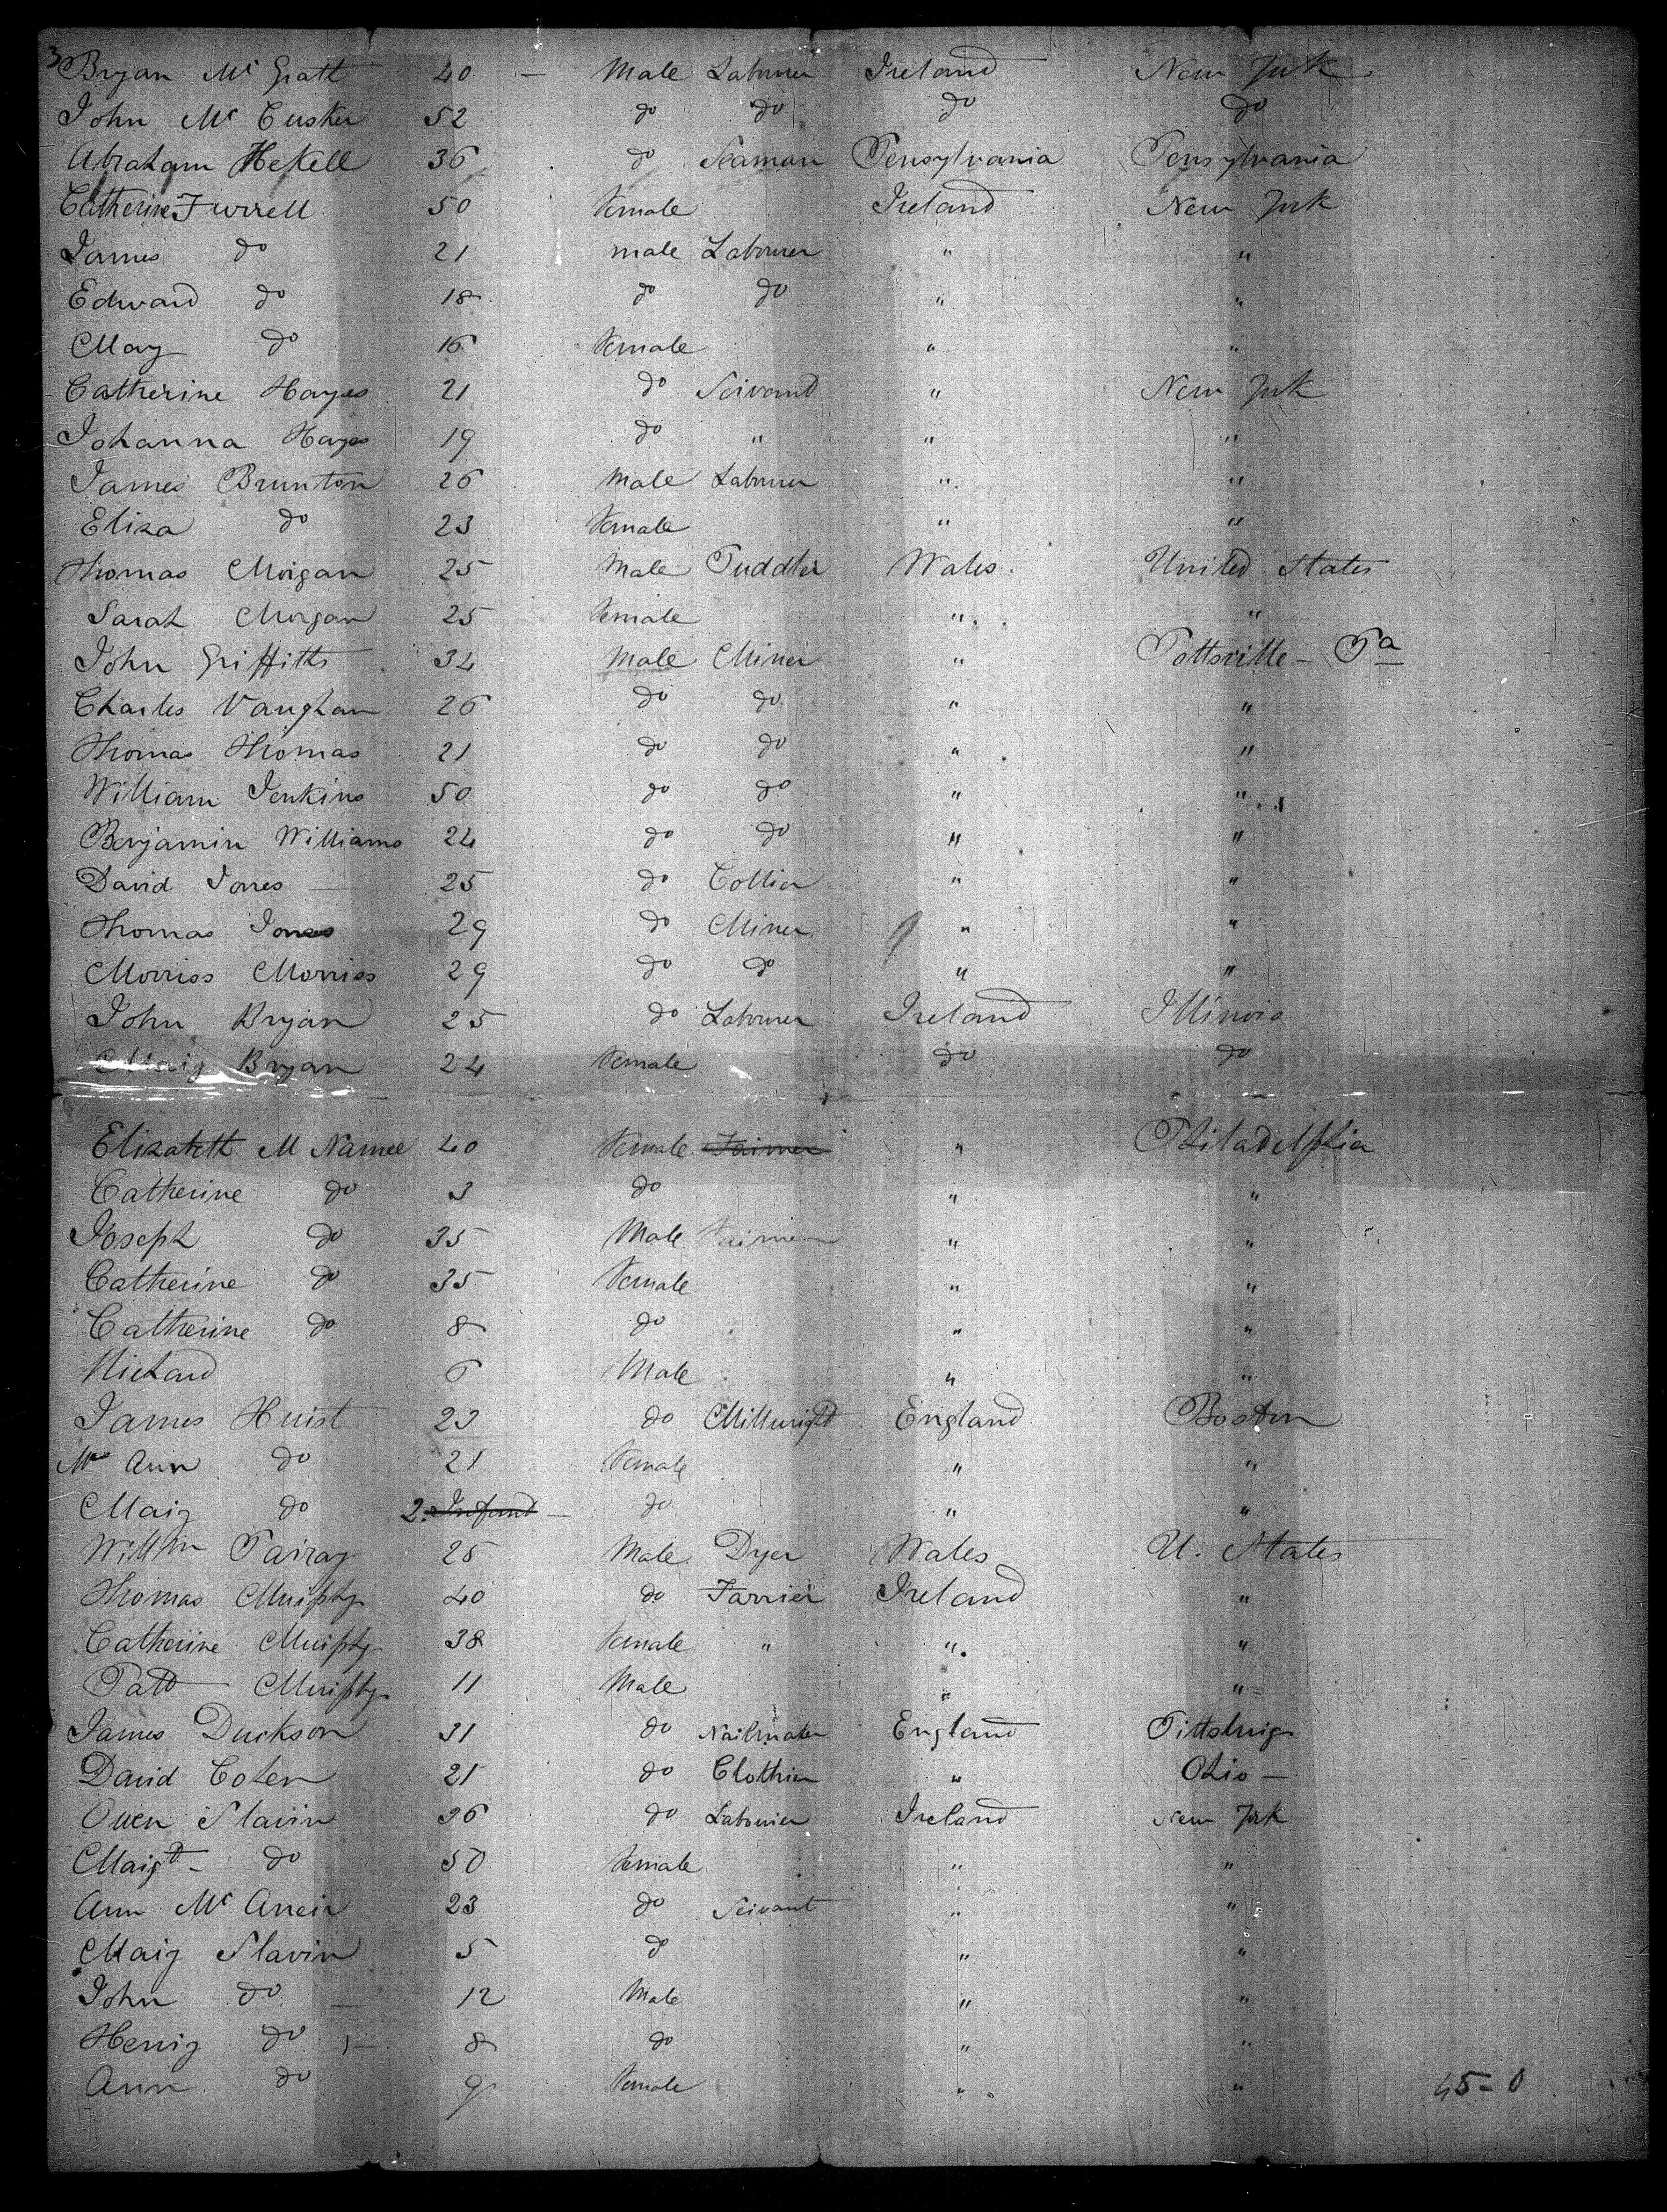 3
Bryan Mc Gratt 40 — Male Labourer Ireland New York
John Mc Cusker 52 do do do do
Abraham Hekell 36 do Seaman Pensylvania Pensylvania
Catherine Furrell 50 Female Ireland New York
James do 21 male Labourer " "
Edward do 18 do do " "
Mary do 16 Female " "
Catherine Hayes 21 do Servand " New York
Johanna Hayes 19 do " " "
James Brunton 26 Male Labourer " "
Eliza do 23 Female " "
Thomas Morgan 25 Male Puddler Wales United States
Sarah Morgan 25 Female " "
John Griffitts 34 Male Miner " Pottsville – Pa
Charles Vaughan 26 do do " "
Thomas Thomas 21 do do " "
William Jenkins 50 do do " "
Benjamin Williams 24 do do " "
David Jones — 25 do Collier " "
Thomas Jones 29 do Miner " "
Morriss Morriss 29 do do " "
John Bryan 25 do Labourer Ireland Illinois
Mary Bryan 24 Female do do
Elizabeth M Namee 40 Female Farmer " Philadelphia
Catherine do 3 do " "
Joseph do 35 Male Farmer " "
Catherine do 35 Female " "
Catherine do 8 do " "
Richard 6 Male " "
James Hurst 23 do Millwright England Boston
Mrs Ann do 21 Female " "
Mary do 2. Infant — do " "
Willm Parray 25 Male Dyer Wales U. States
Thomas Murphy 40 do Farrier Ireland "
Catherine Murphy 38 Female " " "
Patt Murphy 11 Male " "
James Duckson 31 do Nailmaker England Pittsburg
David Cohen 21 do Clothier " Ohio —
Owen Slavin 36 do Labourer Ireland New York
Margt – do 50 Female " "
Ann Mc 23 do Servant " "
Mary Slavin 5 do " "
John do — 12 Male " "
Henry do 8 do " "
Ann do 9 Female " " 45 = 0